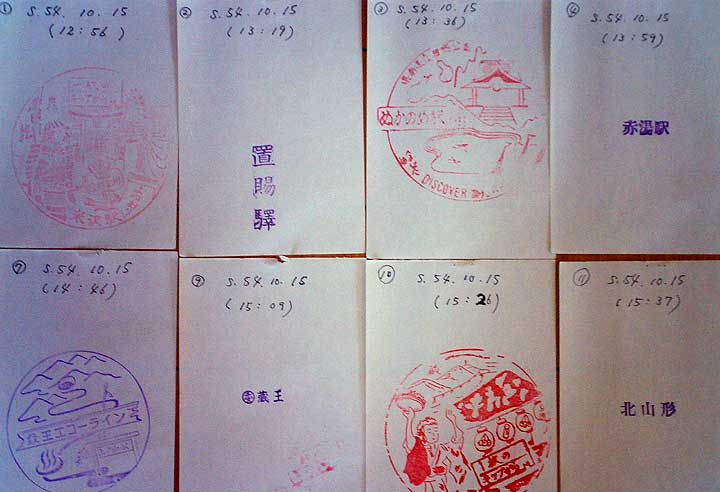 ①
S.54.10.15
(12:56)
米沢駅
②
S.54.10.15
(13:19)
置賜驛
③
S.54.10.15
(13:36)
ぬかのめ駅
DISCOVER
S.54.10.15
(13:59)
赤湯駅
⑦
S.54.10.15
(14:46)
蔵王エコーライン
⑨
S.54.10.15
(15:09)
蔵王
⑩
S.54.10.15
(15:26)
⑪
S.54.10.15
(15:37)
北山形